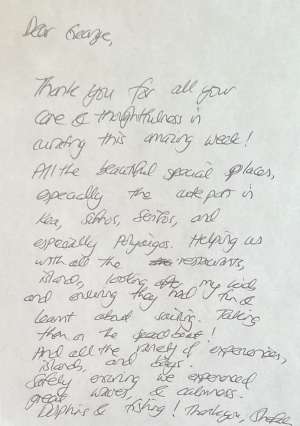 Dear George,
Thank you for all your
care & thoughtfulness in
curating this amazing week!
All the beautiful special places,
especially the cute port in
Kea, Serifos, and
especially Polyaigos. Helping us
with all the restaurants,
island, looking after my kids
and ensuring they had fun &
learnt about sailing. Taking
them on the boat!
And all the variety of experiences,
islands, and bays.
Safely ensuring we experienced
great waves, & calmness.
Dolphins & fishing! Thankyou,